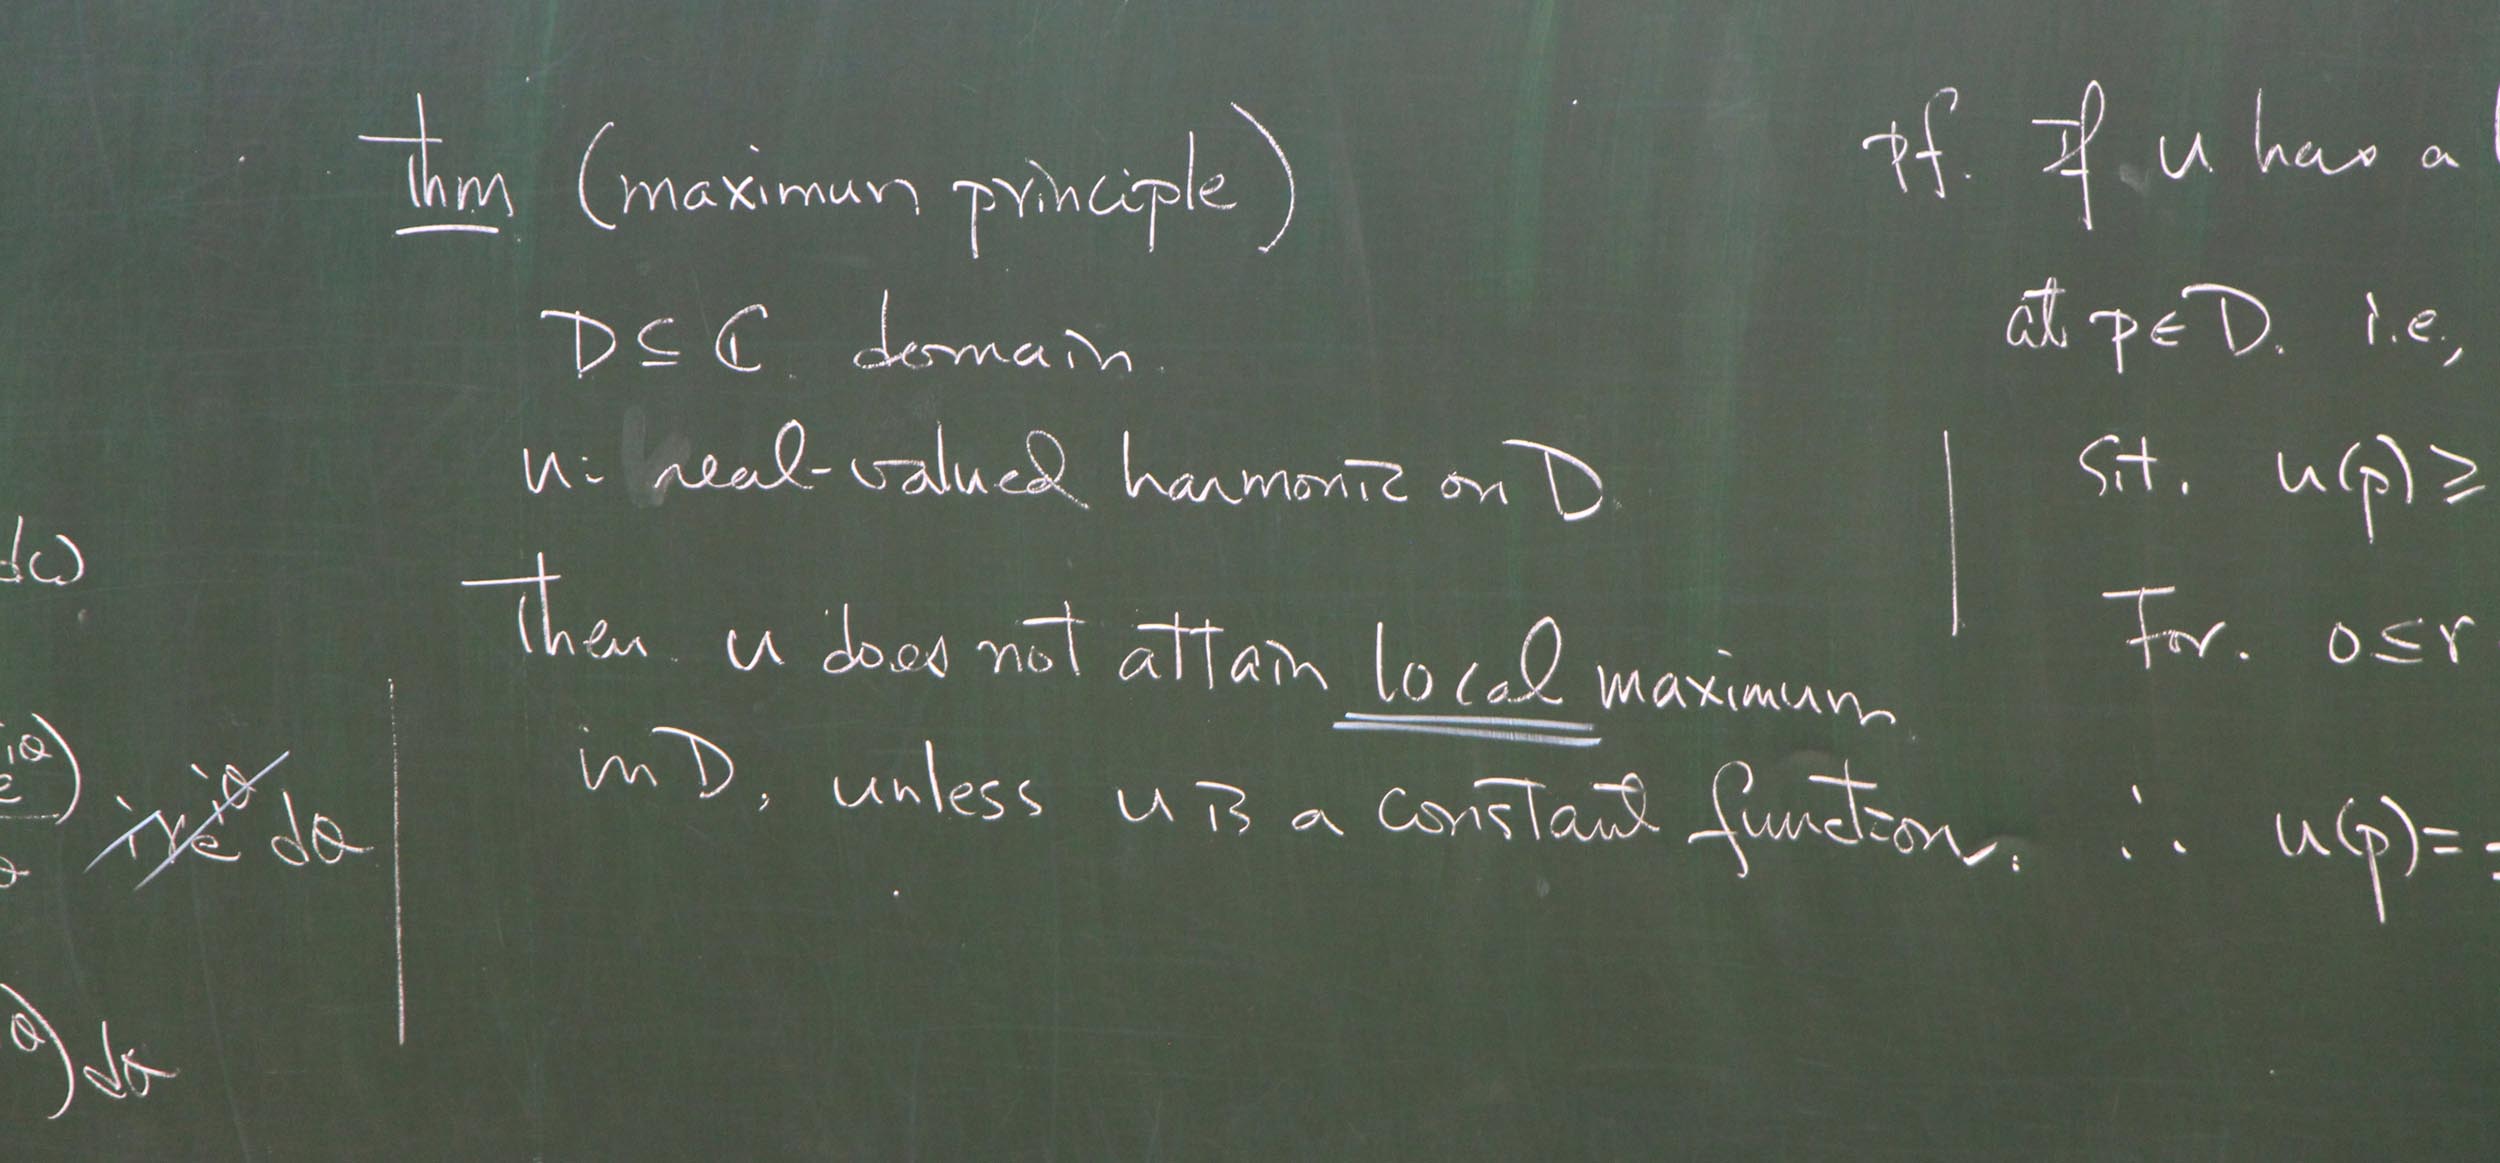 dω
iθ
e) ire^iθ dθ
θ) dθ
Thm (maximum principle)
D ⊆ ℂ. domain.
u: real-valued harmonic on D.
Then u does not attain local maximum
in D, unless u is a constant function.
pf. If u has a
at p ∈ D. i.e.,
s.t. u(p) ≥
For. 0 ≤ r
∴ u(p) =